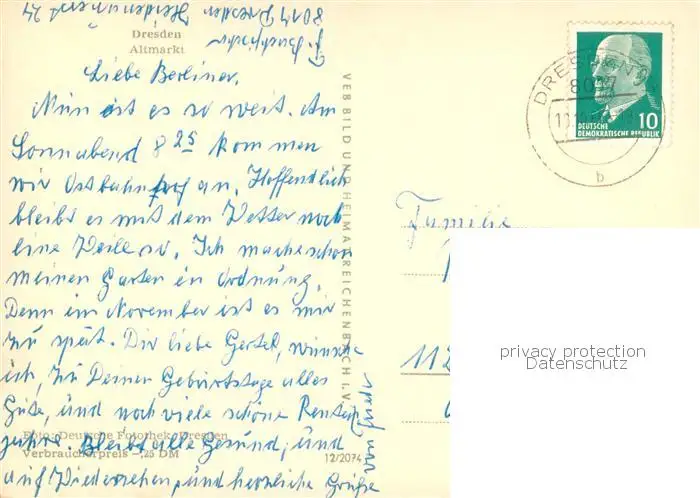 Dresden
Altmarkt
8019 Dresden
Liebe Berliner,
Nun ist es so weit. Am
Sonnabend 8 25 kommen
wir Ostbahnhof an. Hoffendlich
bleibt es mit dem Wetter noch
eine Weile so. Ich mache schon
meinen Garten in Ordnung.
Denn im November ist es mir
zu spät. Dir liebe Gertel, wünsche
ich, zu Deinen Geburtstage alles
Gute, und noch viele schöne Renten-
jahre. Bleibt alle Gesund, und
auf Wiedersehen, und herzliche Grüße
von
Foto: Deutsche Fotothek, Dresden
Verbraucherpreis -,25 DM
12/2074
VEB BILD UND HEIMAT REICHENBACH I. V.
DRESDEN
10
DEUTSCHE
DEMOKRATISCHE REPUBLIK
b
Familie
112
privacy protection
Datenschutz